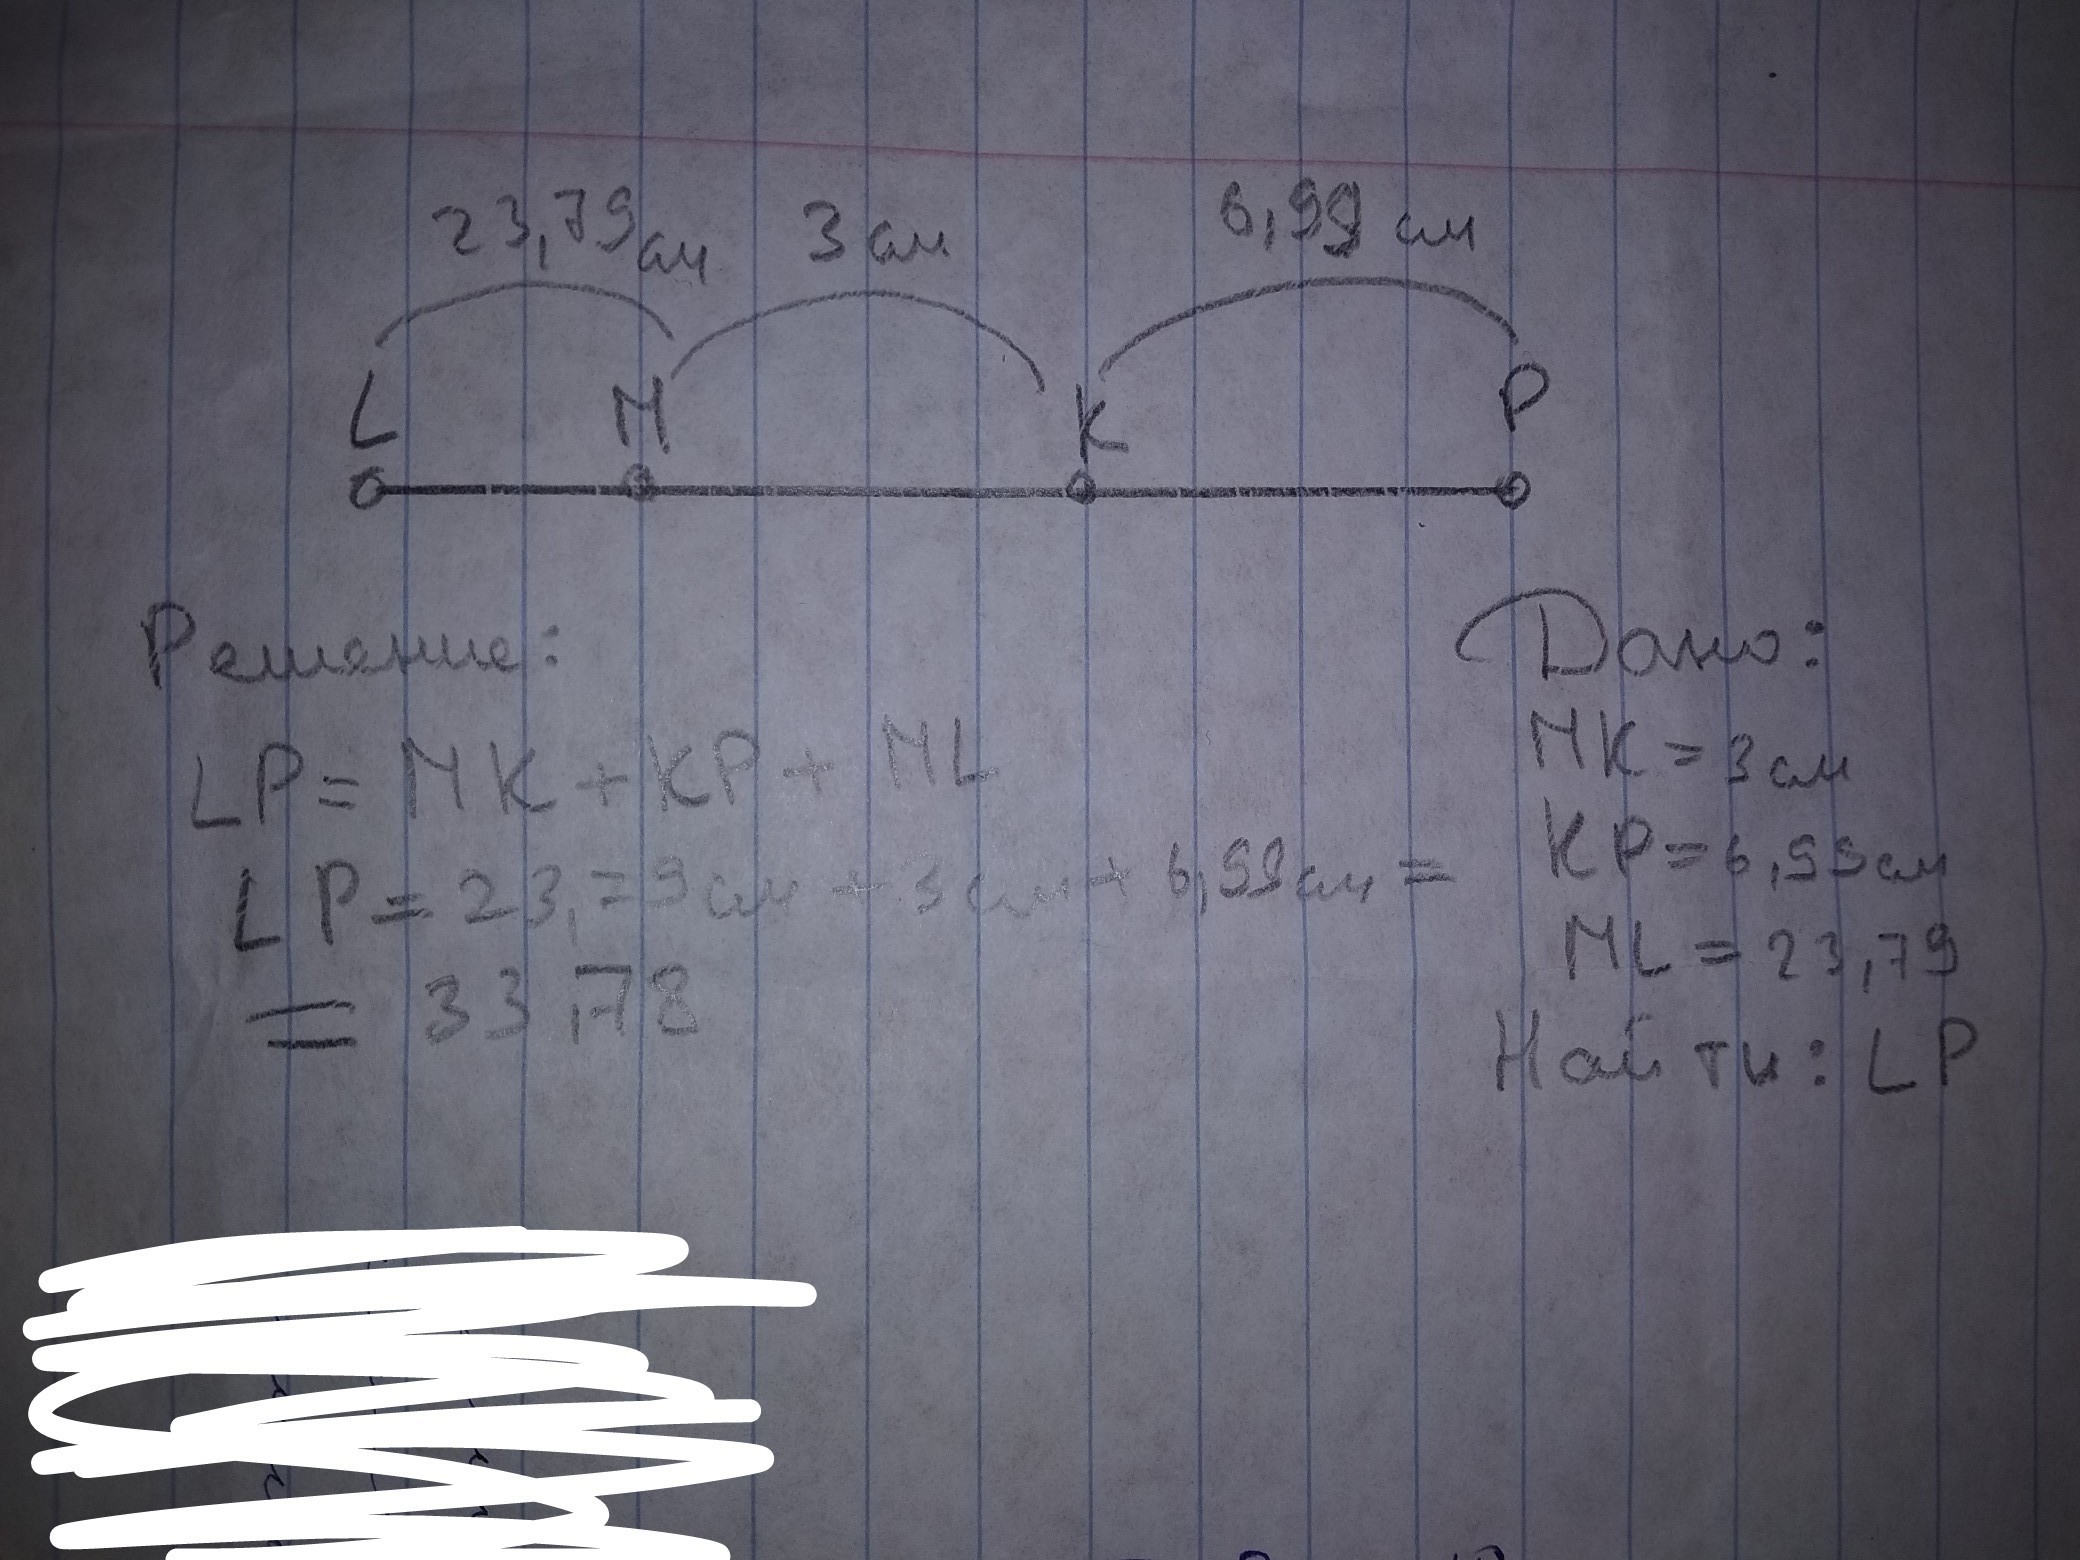 23,79см 3 см 6,99 см
L M K P
Решение:
LP = MK + KP + ML
LP = 23,79см + 3 см + 6,99см =
= 33,78
Дано:
MK = 3 см
KP = 6,99см
ML = 23,79
Найти: LP